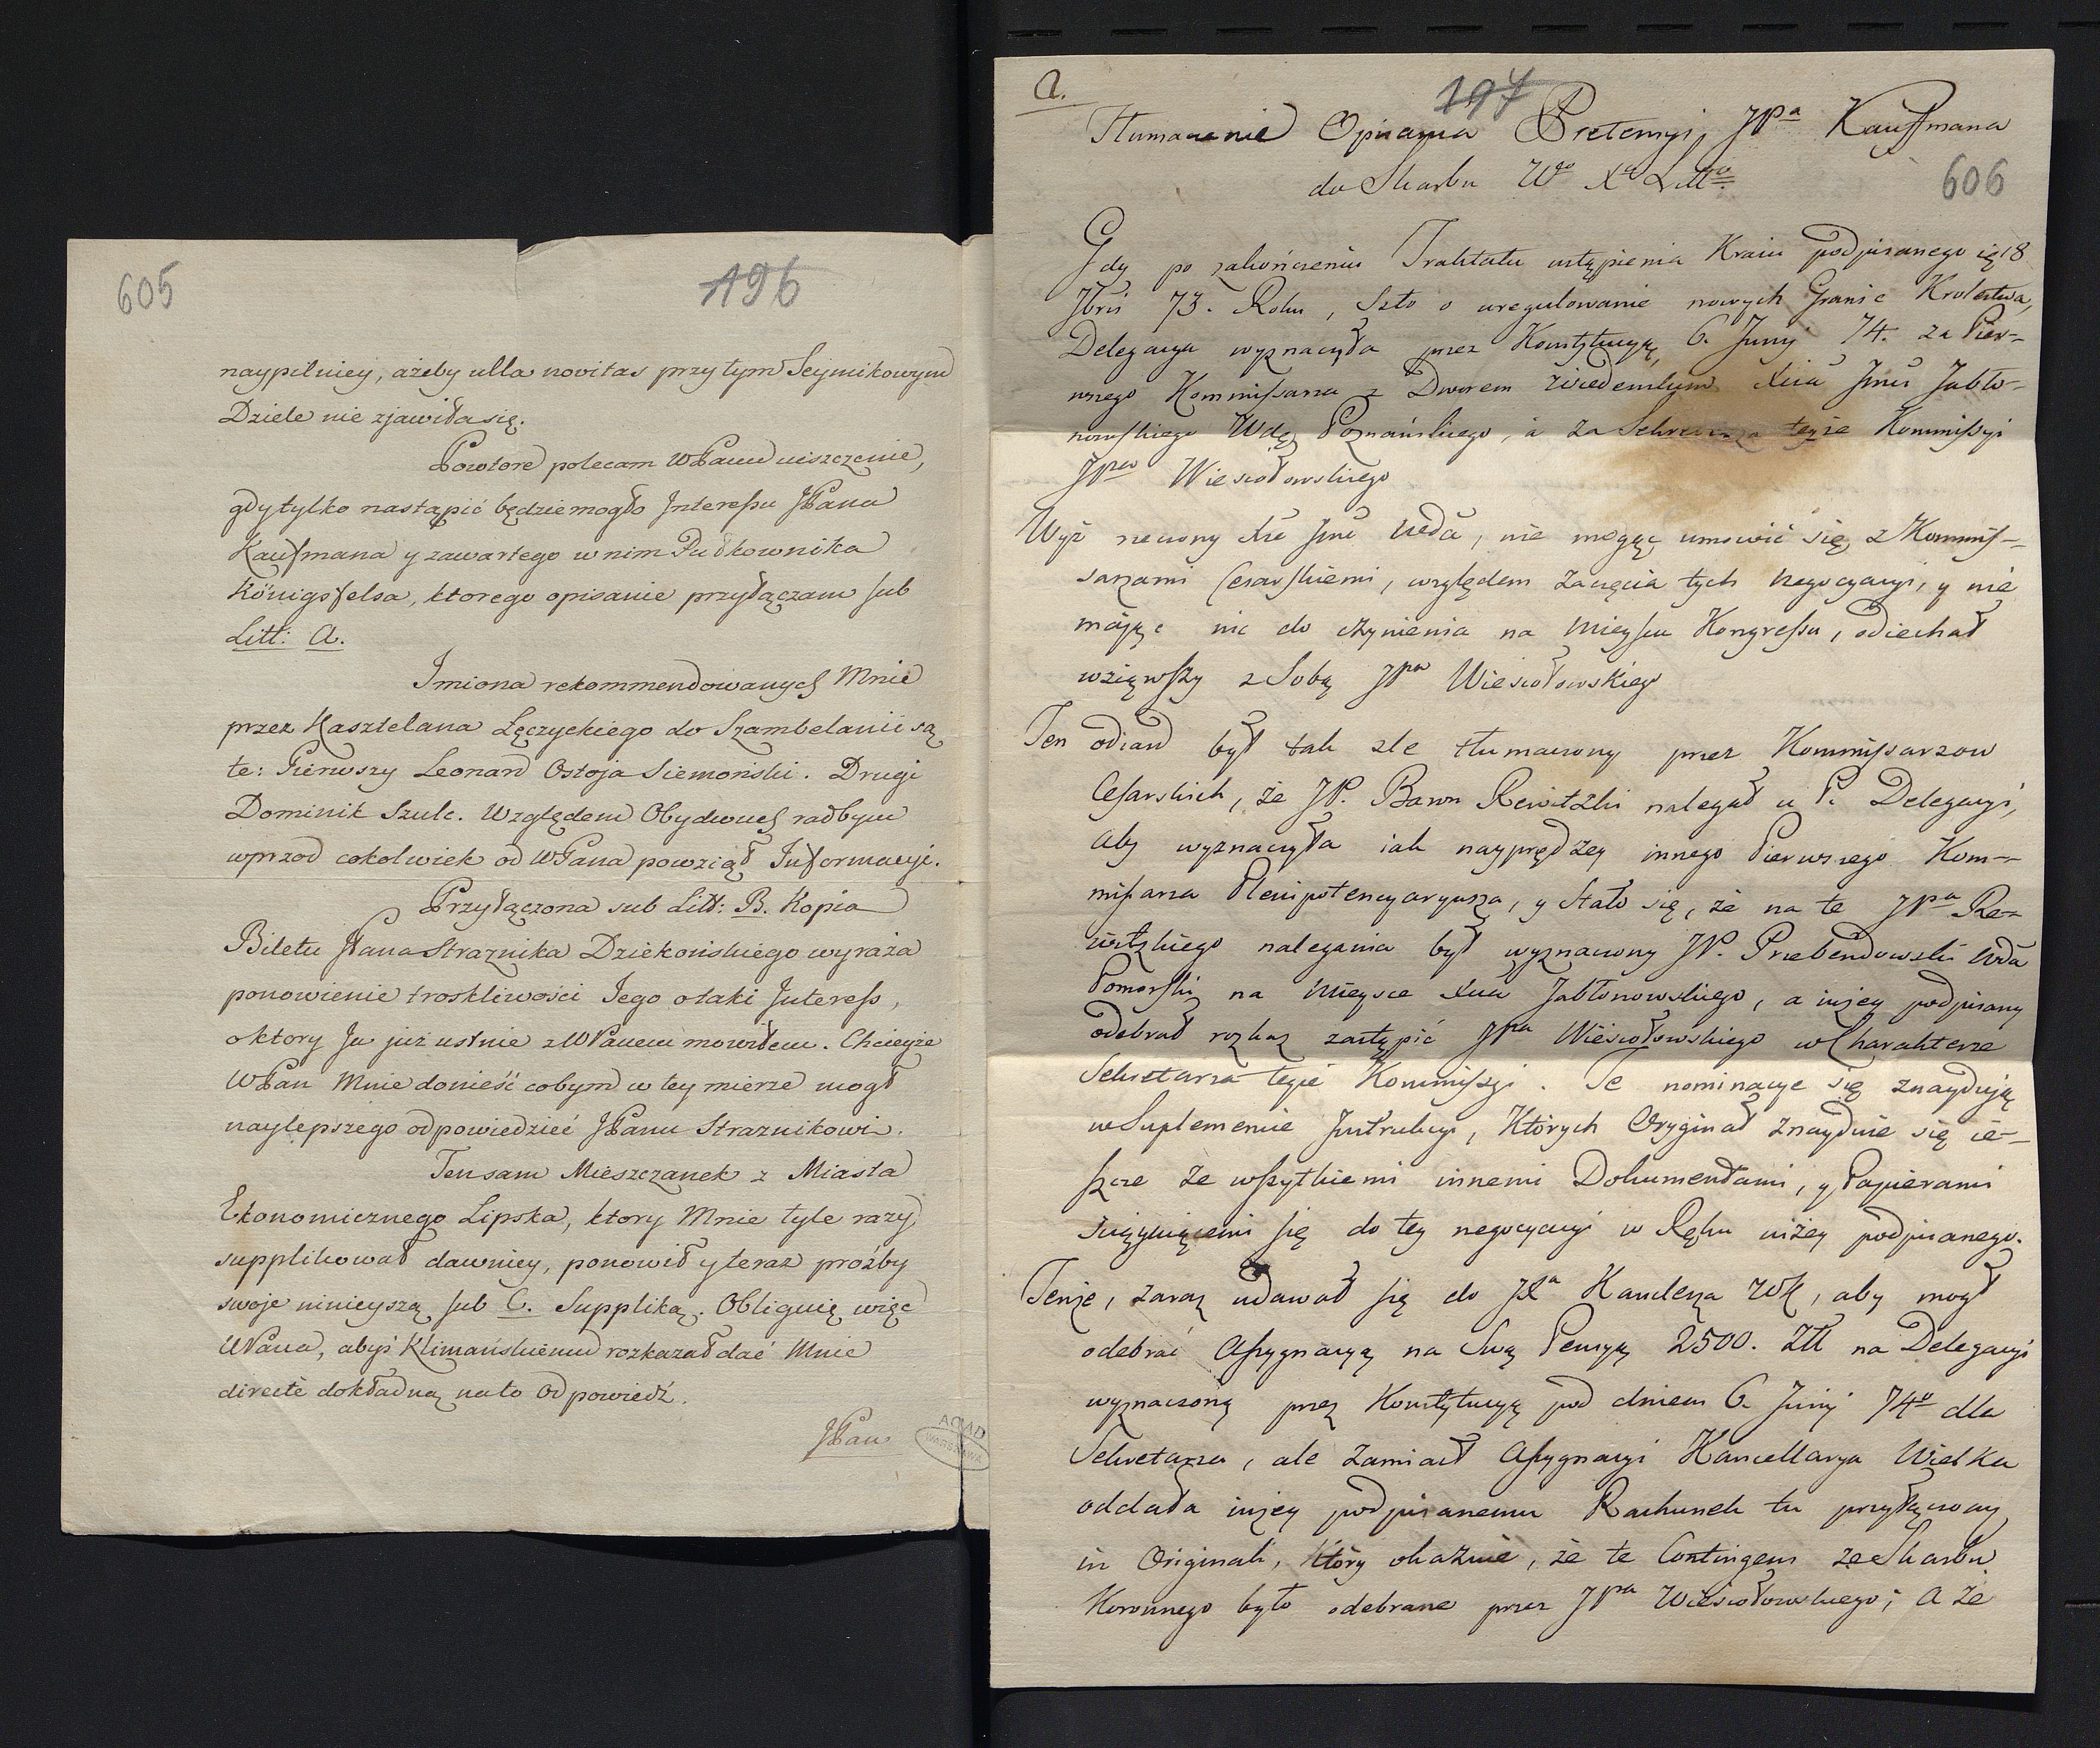 605
196
naypilniey, ażeby ulla novitas przy tym Seymikowym
Dziele nie zjawiła się.
Powtore polecam WPanu uiszczenie,
gdy tylko nastąpić będzie mogło Interessu JPana
Kaufmana y zawartego w nim Pułkownika
Königsfelsa, ktorego opisanie przyłączam sub
Litt: A.
Imiona rekommendowanych Mnie
przez Kasztelana Łęczyckiego do Szambelanii są
te: Pierwszy Leonard Ostoja Siemoński. Drugi
Dominik Szulc. Względem Obydwuch radbym
wprzod cokolwiek od WPana powziął Informacyi.
Przyłączona sub Litt: B. Kopia
Biletu JPana Straznika Dziekońskiego wyraża
ponowienie troskliwości Jego o taki Interess,
o ktory Ja już ustnie z WPanem mowiłem. Chcieyże
WPan Mnie donieść cobym w tey mierze mogł
naylepszego odpowiedzieć JPanu Straznikowi.
Ten sam Mieszczanek z Miasta
Ekonomicznego Lipska, ktory Mnie tyle razy
supplikował dawniey, ponowił y teraz proźby
swoje ninieyszą sub C. Suppliką. Obliguię więc
WPana, abyś Klimańskiemu rozkazał dać Mnie
directè dokładną na to Odpowiedź.
JPan
AGAD
WARSZAWA
a.
197
Tłumaczenie Opisania Pretensyi JPa Kauffmana
do Skarbu Wgo Xa Litt
606
Gdy po zakończeniu Traktatu ustąpienia Kraiu podpisanego 18
7bris 73. Roku, Szło o uregulowanie nowych Granic Krolestwa,
Delegacya wyznaczyła przez Konstytucyą 6. Junij 74. za Pier-
wszego Kommissarza z Dworem Wiedenskym Xcia Jmci Jabło-
nowskiego Wdę Poznańskiego, a za Sekretarza teyże Kommissyi
JPana Wiesiołowskiego
Wyż rzeczony Xże Jmć Wda, nie mogąc umowić się z Kommis-
sarzami Cesarskiemi, względem zaczęcia tych negocyacyi, y nie
mając nic do czynienia na Mieyscu Kongressu, odiechał
wziąwszy z Sobą JPa Wiesiołowskiego
Ten odiazd był tak źle tłumaczony przez Kommissarzow
Cesarskich, że JP. Baron Rewitzki nalegał u P. Delegacyi,
aby wyznaczyła iak nayprędzey innego Pierwszego Kom-
missarza Plenipotencyaryusza, y Stało się, że na te JPa Re-
witzkiego nalegania był wyznaczony JP. Przebendowski Wda
Pomorski na Mieysce Xcia Jabłonowskiego, a niżey podpisany
odebrał rozkaz zastąpić JPa Wiesiołowskiego w Charakterze
Sekretarza teyże Kommissyi. Te nominacye się znayduią
w Suplemencie Instrukcyi, Których Oryginał znaydzie się ie-
szcze ze wszytkiemi innemi Dokumentami, y Papierami
ściągaiącemi się do tey negocyacyi w Ręku niżey podpisanego.
Tenże, zaraz udawał się do JXa Kanclerza WK, aby mogł
odebrać Assygnacyą na Swą Pensyą 2500. Złł na Delegacyi
wyznaczoną przez Konstytucyą pod dniem 6. Junij 74o dla
Sekretarza, ale zamiast Assygnacyi Kancellarya Wielka
oddała niżey podpisanemu Rachunek tu przyłączony
in Originali, Który okazuie, że te Contingens ze Skarbu
Koronnego było odebrane przez JPa Wiesiołowskiego; a że